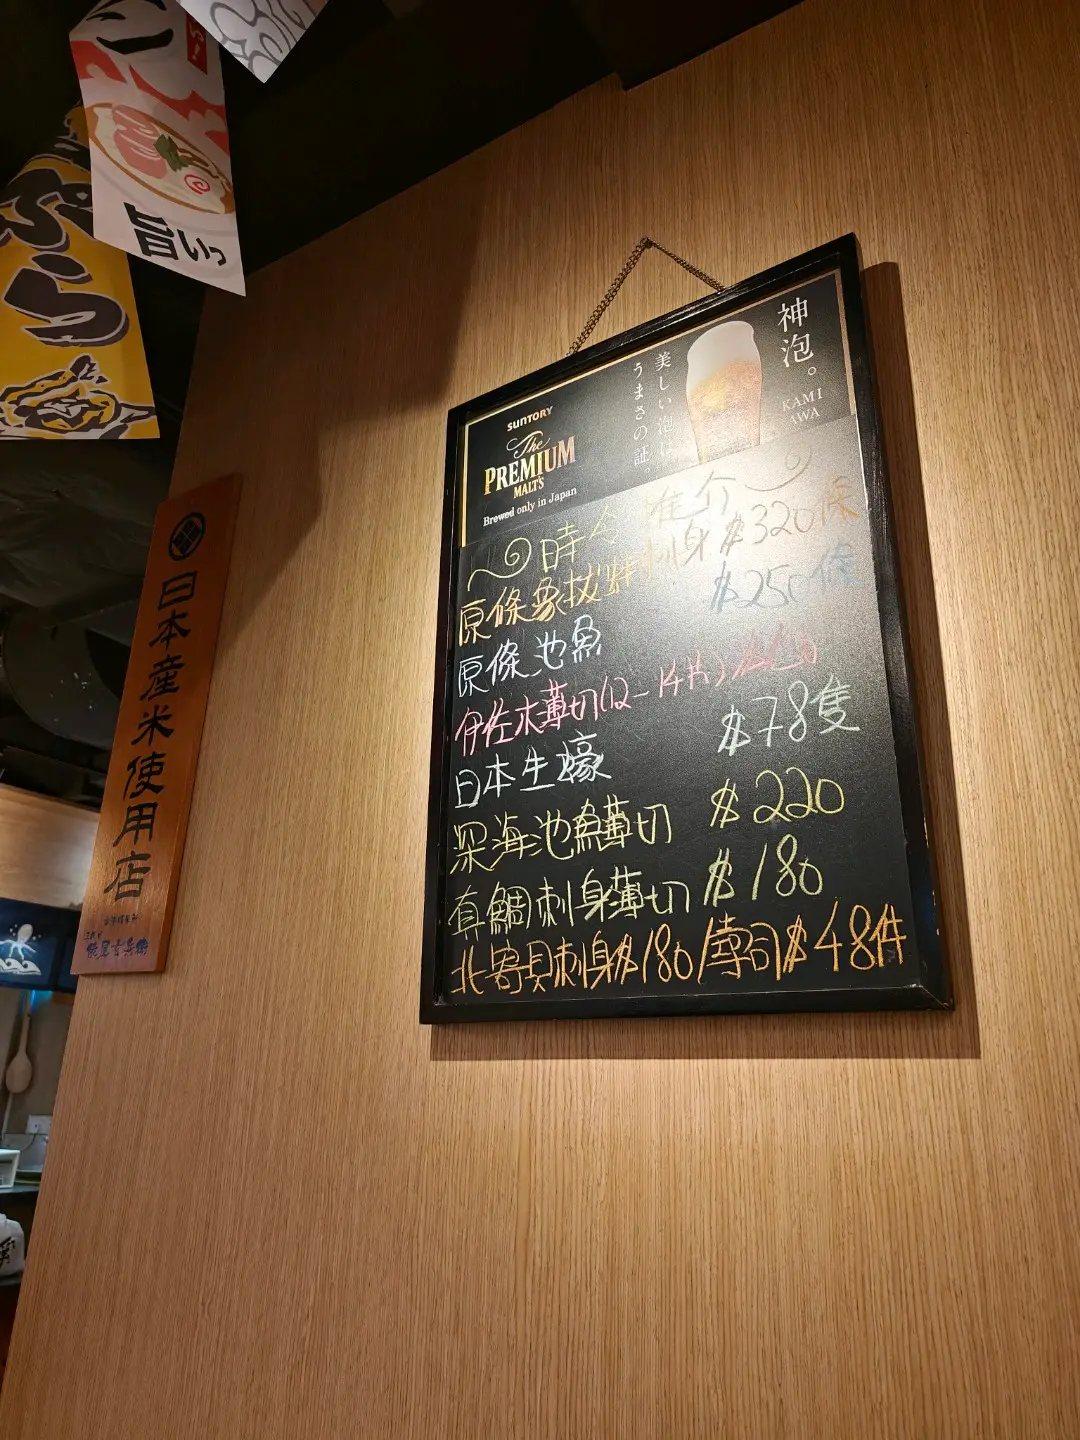 い!
旨いっ
ぷら
神泡。
KAMI
AWA
美しい泡は、
うまさの証。
SUNTORY
The
PREMIUM
MALT'S
Brewed only in Japan
時令推介
原條象拔蚌刺身 $320條
原條池魚 $250條
伊佐木薄切(12-14片)
日本生蠔 $78隻
深海池魚薄切 $220
真鯛刺身薄切 $180
北寄貝刺身$180/壽司$48件
日本産米使用店